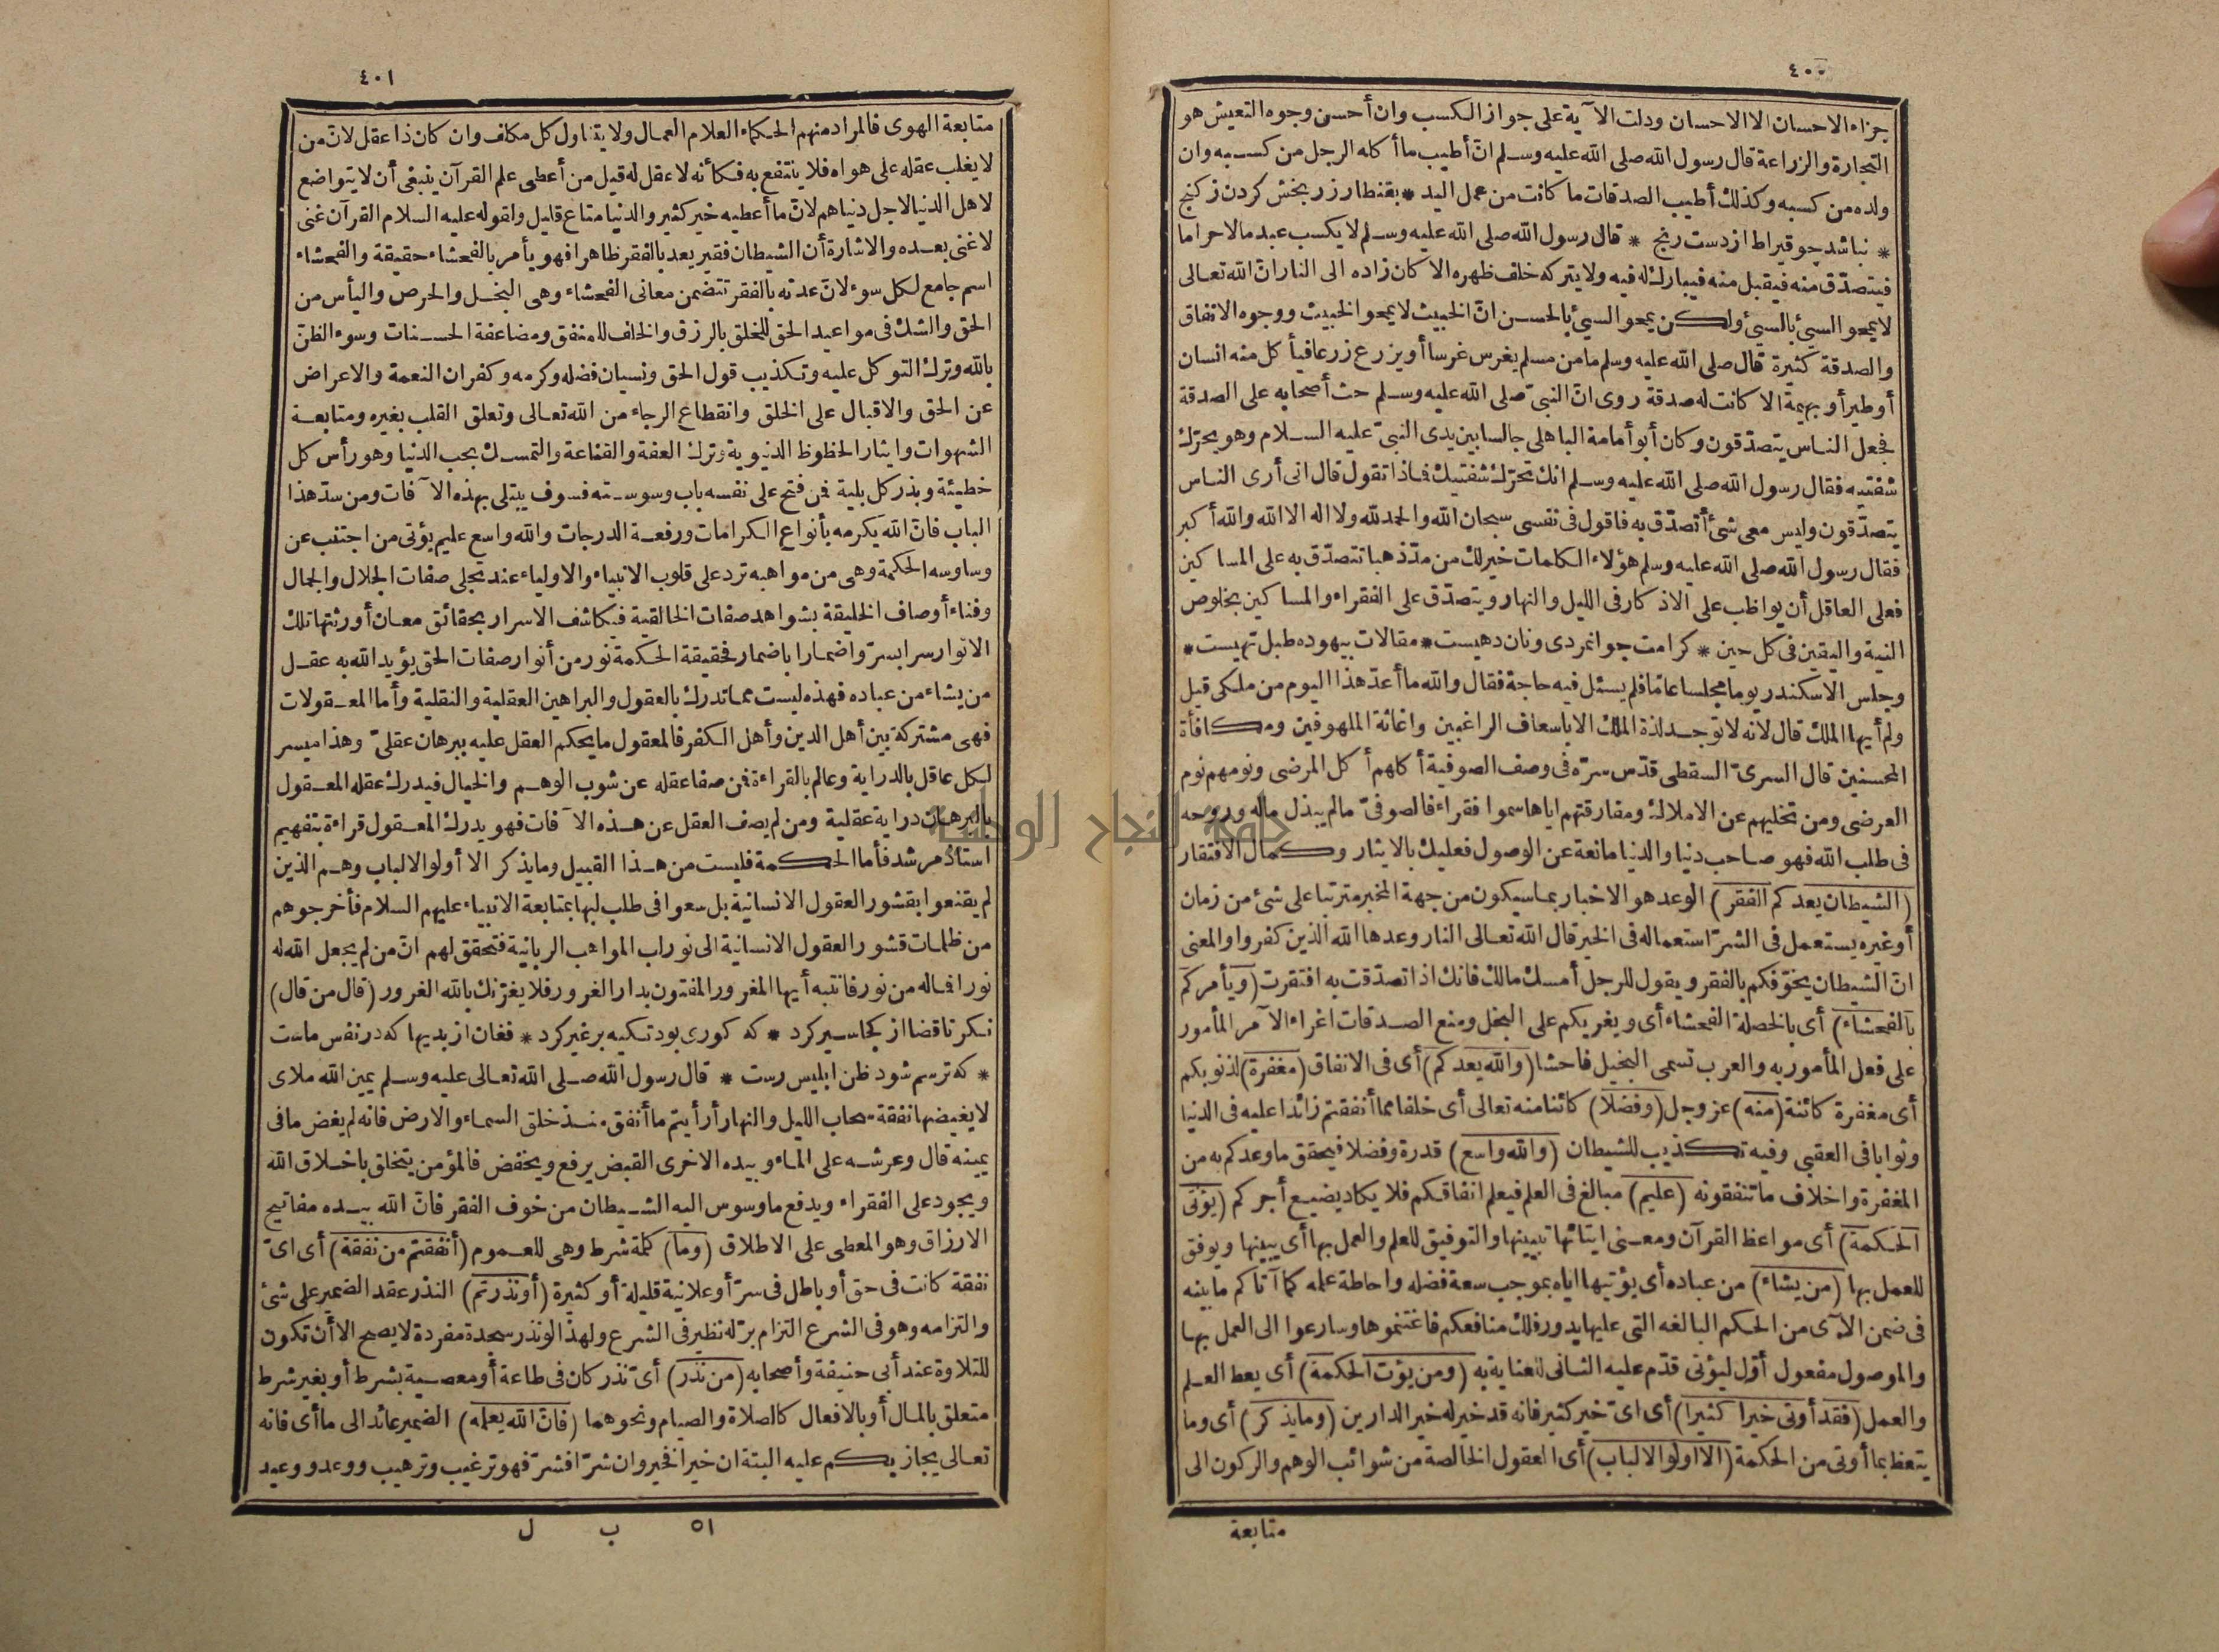 ٤٠٠
جزاء الاحسان الا الاحسان ودلت الآية على جواز الكسب وان أحسن وجوه التعيش هو
التجارة والزراعة قال رسول الله صلى الله عليه وسلم انّ أطيب ما أكله الرجل من كسبه وان
ولده من كسبه وكذلك أطيب الصدقات ما كانت من عمل اليد * بقنطار زر بخش كردن ز كنج
* نباشد چو قيراط از دست رنج * قال رسول الله صلى الله عليه وسلم لا يكسب عبد مالا حراما
فيتصدّق منه فيقبل منه فيبارك له فيه ولا يتركه خلف ظهره الا كان زاده الى النار انّ الله تعالى
لا يمحو السيئ بالسيئ ولكن يمحو السيئ بالحسن انّ الخبيث لا يمحو الخبيث ووجوه الانفاق
والصدقة كثيرة قال صلى الله عليه وسلم ما من مسلم يغرس غرسا أو يزرع زرعا فيأكل منه انسان
أو طير أو بهيمة الا كانت له صدقة روى انّ النبىّ صلى الله عليه وسلم حث أصحابه على الصدقة
فجعل الناس يتصدّقون وكان أبو أمامة الباهلى جالسا بين يدى النبىّ عليه السلام وهو يحرّك
شفتيه فقال رسول الله صلى الله عليه وسلم انك تحرّك شفتيك فماذا تقول قال انى أرى الناس
يتصدّقون وليس معى شئ أتصدّق به فاقول فى نفسى سبحان الله والحمد لله ولا اله الا الله والله أكبر
فقال رسول الله صلى الله عليه وسلم هؤلاء الكلمات خير لك من مدّ ذهبا تتصدّق به على المساكين
فعلى العاقل أن يواظب على الاذكار فى الليل والنهار ويتصدّق على الفقراء والمساكين بخلوص
النية واليقين فى كل حين * كرامت جوانمردى ونان دهيست * مقالات بيهوده طبل تهيست *
وجلس الاسكندر يوما مجلسا عامّا فلم يسئل فيه حاجة فقال والله ما أعدّ هذا اليوم من ملكى قيل
ولم أيها الملك قال لانه لا توجد لذة الملك الا باسعاف الراغبين واغاثة الملهوفين ومكافأة
المحسنين قال السرىّ السقطى قدّس سرّه فى وصف الصوفية أكلهم أكل المرضى ونومهم نوم
الغرضى ومن تخليهم عن الاملاك ومفارقتهم اياها سموا فقراء فالصوفىّ ما لم يبذل ماله وروحه
فى طلب الله فهو صاحب دنيا والدنيا مانعة عن الوصول فعليك بالايثار وكمال الافتقار
(الشيطان يعدكم الفقر) الوعد هو الاخبار بما سيكون من جهة المخبر مترتبا على شئ من زمان
أو غيره يستعمل فى الشرّ استعماله فى الخير قال الله تعالى النار وعدها الله الذين كفروا والمعنى
انّ الشيطان يخوّفكم بالفقر ويقول للرجل أمسك مالك فانك اذا تصدّقت به افتقرت (ويأمركم
بالفحشاء) أى بالخصلة الفحشاء أى ويغريكم على البخل ومنع الصدقات اغراء الآمر المأمور
على فعل المأمور به والعرب تسمى البخيل فاحشا (والله يعدكم) أى فى الانفاق (مغفرة) لذنوبكم
أى مغفرة كائنة (منه) عز وجل (وفضلا) كائنا منه تعالى أى خلفا مما أنفقتم زائدا عليه فى الدنيا
وثوابا فى العقبى وفيه تكذيب للشيطان (والله واسع) قدرة وفضلا فيحقق ما وعدكم به من
المغفرة واخلاف ما تنفقونه (عليم) مبالغ فى العلم فيعلم انفاقكم فلا يكاد يضيع أجركم (يؤتى
الحكمة) أى مواعظ القرآن ومعنى ايتائها تبيينها والتوفيق للعلم والعمل بها أى يبينها ويوفق
للعمل بها (من يشاء) من عباده أى يؤتيها اياه بموجب سعة فضله واحاطة علمه كما آتاكم ما بينه
فى ضمن الآى من الحكم البالغة التى عليها يدور فلك منافعكم فاغتنموها وسارعوا الى العمل بها
والموصول مفعول أوّل ليؤتى قدّم عليه الثانى للعناية به (ومن يؤت الحكمة) أى يعط العلم
والعمل (فقد أوتى خيرا كثيرا) أى اىّ خير كثير فانه قد خير له خير الدارين (وما يذكر) أى وما
يتعظ بما أوتى من الحكمة (الا اولوا الالباب) أى العقول الخالصة من شوائب الوهم والركون الى
متابعة
٤٠١
متابعة الهوى فالمراد منهم الحكماء العلام العمال ولا يتناول كل مكلف وان كان ذا عقل لانّ من
لا يغلب عقله على هواه فلا ينتفع به فكأنه لا عقل له قيل من أعطى علم القرآن ينبغى أن لا يتواضع
لاهل الدنيا لاجل دنياهم لانّ ما أعطيه خير كثير والدنيا متاع قليل ولقوله عليه السلام القرآن غنى
لا غنى بعده والاشارة أن الشيطان فقير يعد بالفقر ظاهرا فهو يأمر بالفحشاء حقيقة والفحشاء
اسم جامع لكل سوء لانّ عدته بالفقر تتضمن معانى الفحشاء وهى البخل والحرص واليأس من
الحق والشك فى مواعيد الحق للخلق بالرزق والخلف للمنفق ومضاعفة الحسنات وسوء الظنّ
بالله وترك التوكل عليه وتكذيب قول الحق ونسيان فضله وكرمه وكفران النعمة والاعراض
عن الحق والاقبال على الخلق وانقطاع الرجاء من الله تعالى وتعلق القلب بغيره ومتابعة
الشهوات وايثار الحظوظ الدنيوية وترك العفة والقناعة والتمسك بحب الدنيا وهو رأس كل
خطيئة وبذر كل بلية فمن فتح على نفسه باب وسوسته فسوف يبتلى بهذه الآفات ومن سدّ هذا
الباب فانّ الله يكرمه بأنواع الكرامات ورفعة الدرجات والله واسع عليم يؤتى من اجتنب عن
وساوسه الحكمة وهى من مواهبه ترد على قلوب الانبياء والاولياء عند تجلى صفات الجلال والجمال
وفناء أوصاف الخليقة بشواهد صفات الخالقية فيكاشف الاسرار بحقائق معان أورثتها تلك
الانوار سرا بسرّ واضمارا باضمار فحقيقة الحكمة نور من أنوار صفات الحق يؤيد الله به عقل
من يشاء من عباده فهذه ليست مما تدرك بالعقول والبراهين العقلية والنقلية وأما المعقولات
فهى مشتركة بين أهل الدين وأهل الكفر فالمعقول ما يحكم العقل عليه ببرهان عقلىّ وهذا ميسر
لكل عاقل بالدراية وعالم بالقراءة فمن صفا عقله عن شوب الوهم والخيال فيدرك عقله المعقول
بالبرهان دراية عقلية ومن لم يصف العقل عن هذه الآفات فهو يدرك المعقول قراءة بتفهيم
استاذ مرشد فأما الحكمة فليست من هذا القبيل وما يذكر الا أولوا الالباب وهم الذين
لم يقنعوا بقشور العقول الانسانية بل سعوا فى طلب لبها بمتابعة الانبياء عليهم السلام فأخرجوهم
من ظلمات قشور العقول الانسانية الى نور اب المواهب الربانية فتحقق لهم انّ من لم يجعل الله له
نورا فما له من نور فانتبه أيها المغرور المفتون بدار الغرور فلا يغرّنك بالله الغرور (قال من قال)
نكر تا قضا از كجا سير كرد * كه كورى بود تكيه بر غير كرد * فغان از بديها كه در نفس ماست
* كه ترسم شود ظن ابليس رست * قال رسول الله صلى الله تعالى عليه وسلم يمين الله ملأى
لا يغيضها نفقة سحاء الليل والنهار أرأيتم ما أنفق منذ خلق السماء والارض فانه لم يغض ما فى
يمينه قال وعرشه على الماء وبيده الاخرى القبض يرفع ويخفض فالمؤمن يتخلق باخلاق الله
ويجود على الفقراء ويدفع ما وسوس اليه الشيطان من خوف الفقر فانّ الله بيده مفاتيح
الارزاق وهو المعطى على الاطلاق (وما) كلمة شرط وهى للعموم (أنفقتم من نفقة) أى اىّ
نفقة كانت فى حق أو باطل فى سرّ أو علانية قليلة أو كثيرة (أو نذرتم) النذر عقد الضمير على شئ
والتزامه وهو فى الشرع التزام برّ له نظير فى الشرع ولهذا لو نذر سجدة مفردة لا يصح الا أن تكون
للتلاوة عند أبى حنيفة وأصحابه (من نذر) أىّ نذر كان فى طاعة أو معصية بشرط أو بغير شرط
متعلق بالمال أو بالافعال كالصلاة والصيام ونحوهما (فانّ الله يعلمه) الضمير عائد الى ما أى فانه
تعالى يجازيكم عليه البتة ان خيرا فخير وان شرّا فشرّ فهو ترغيب وترهيب ووعد ووعيد
٥١ ب ل
جامعة النجاح الوطنية